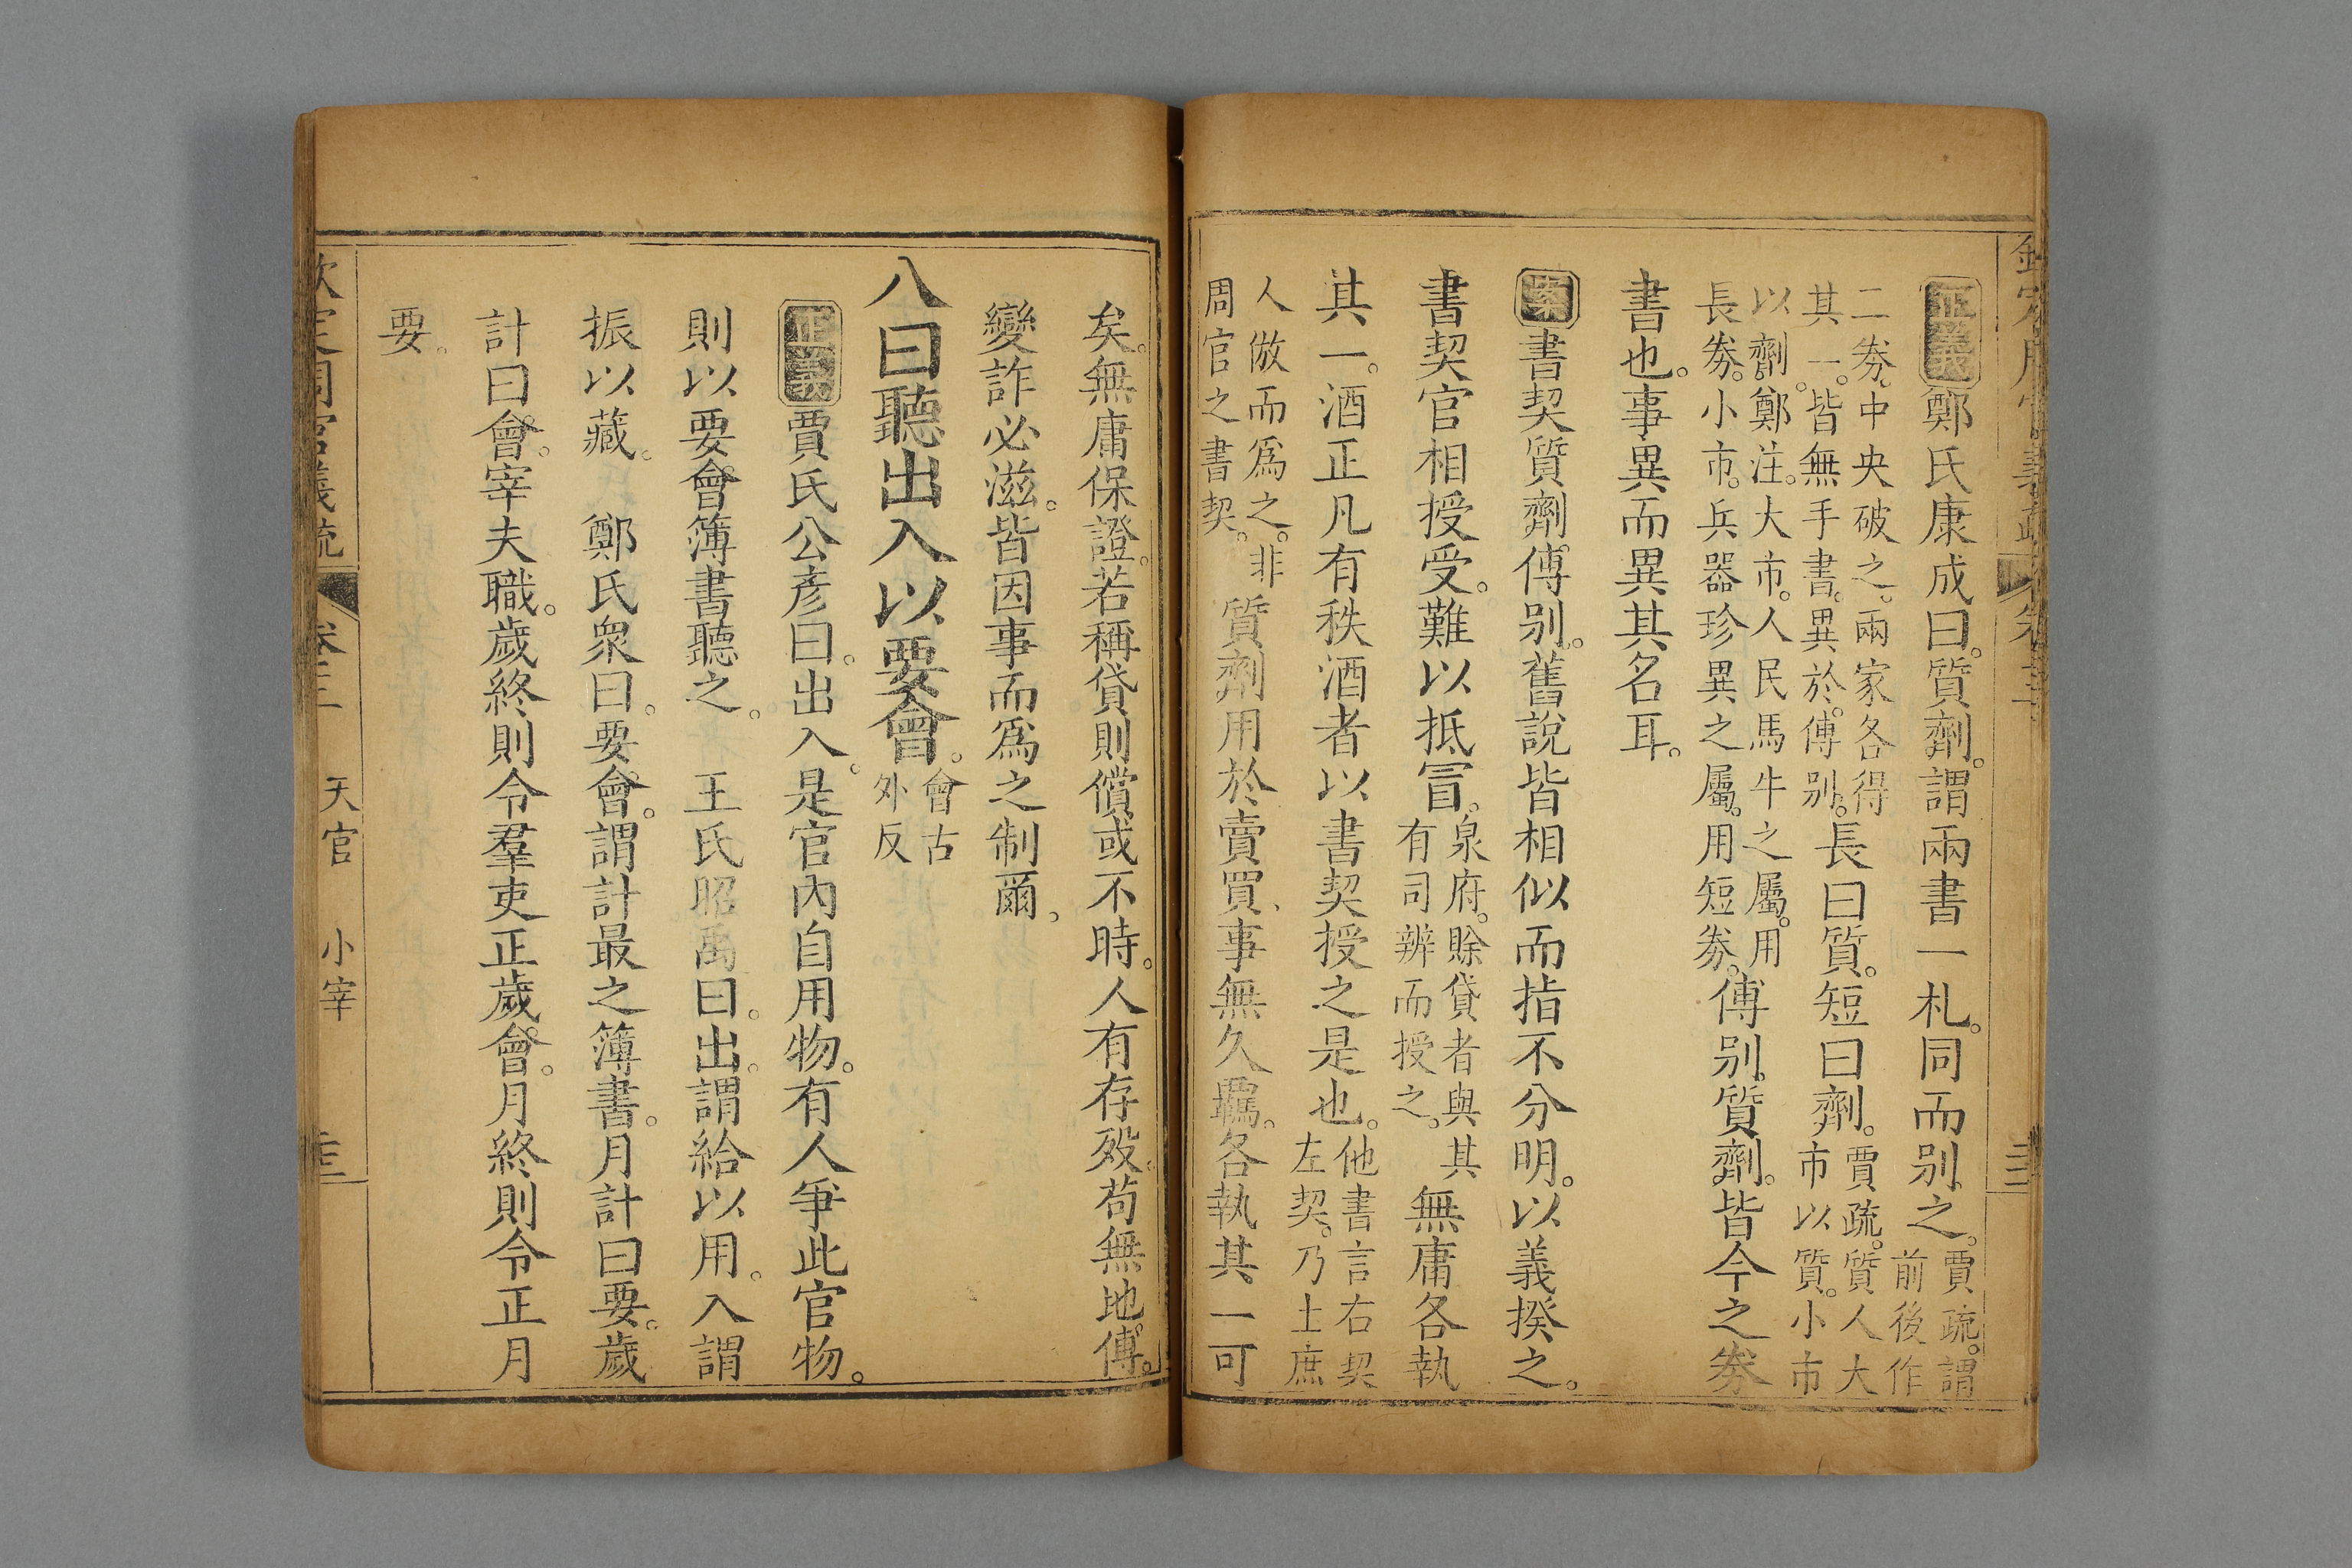 正義鄭氏康成曰。質劑。謂兩書一札。同而别之。賈疏。謂前後作
二券。中央破之。兩家各得其一。皆無手書。異於傅别。長曰質。短曰劑。賈疏。質人大市以質。小市
以劑。鄭注。大市。人民馬牛之屬。用長券。小市。兵器珍異之屬。用短券。傅别質劑。皆今之券
書也。事異而異其名耳。
案書契質劑傅别。舊說皆相似而指不分明。以義揆之。
書契官相授受。難以抵冒。泉府。賒貸者與其有司辨而授之。無庸各執
其一。酒正凡有秩酒者以書契授之是也。他書言右契左契。乃士庶
人倣而爲之。非周官之書契。質劑用於賣買、事無久羈。各執其一可
矣。無庸保證。若稱貸則償或不時。人有存殁。苟無地傅。
變詐必滋。皆因事而爲之制爾。
八曰聽出入以要會。會古外反
正義賈氏公彦曰。出入。是官內自用物。有人爭此官物。
則以要會簿書聽之。 王氏昭禹曰。出。謂給以用。入謂
振以藏。 鄭氏衆曰。要會。謂計最之簿書。月計曰要。歲
計曰會。宰夫職。歲終則令羣吏正歲會。月終則令正月
要。
欽定周官義疏 卷三 天官 小宰